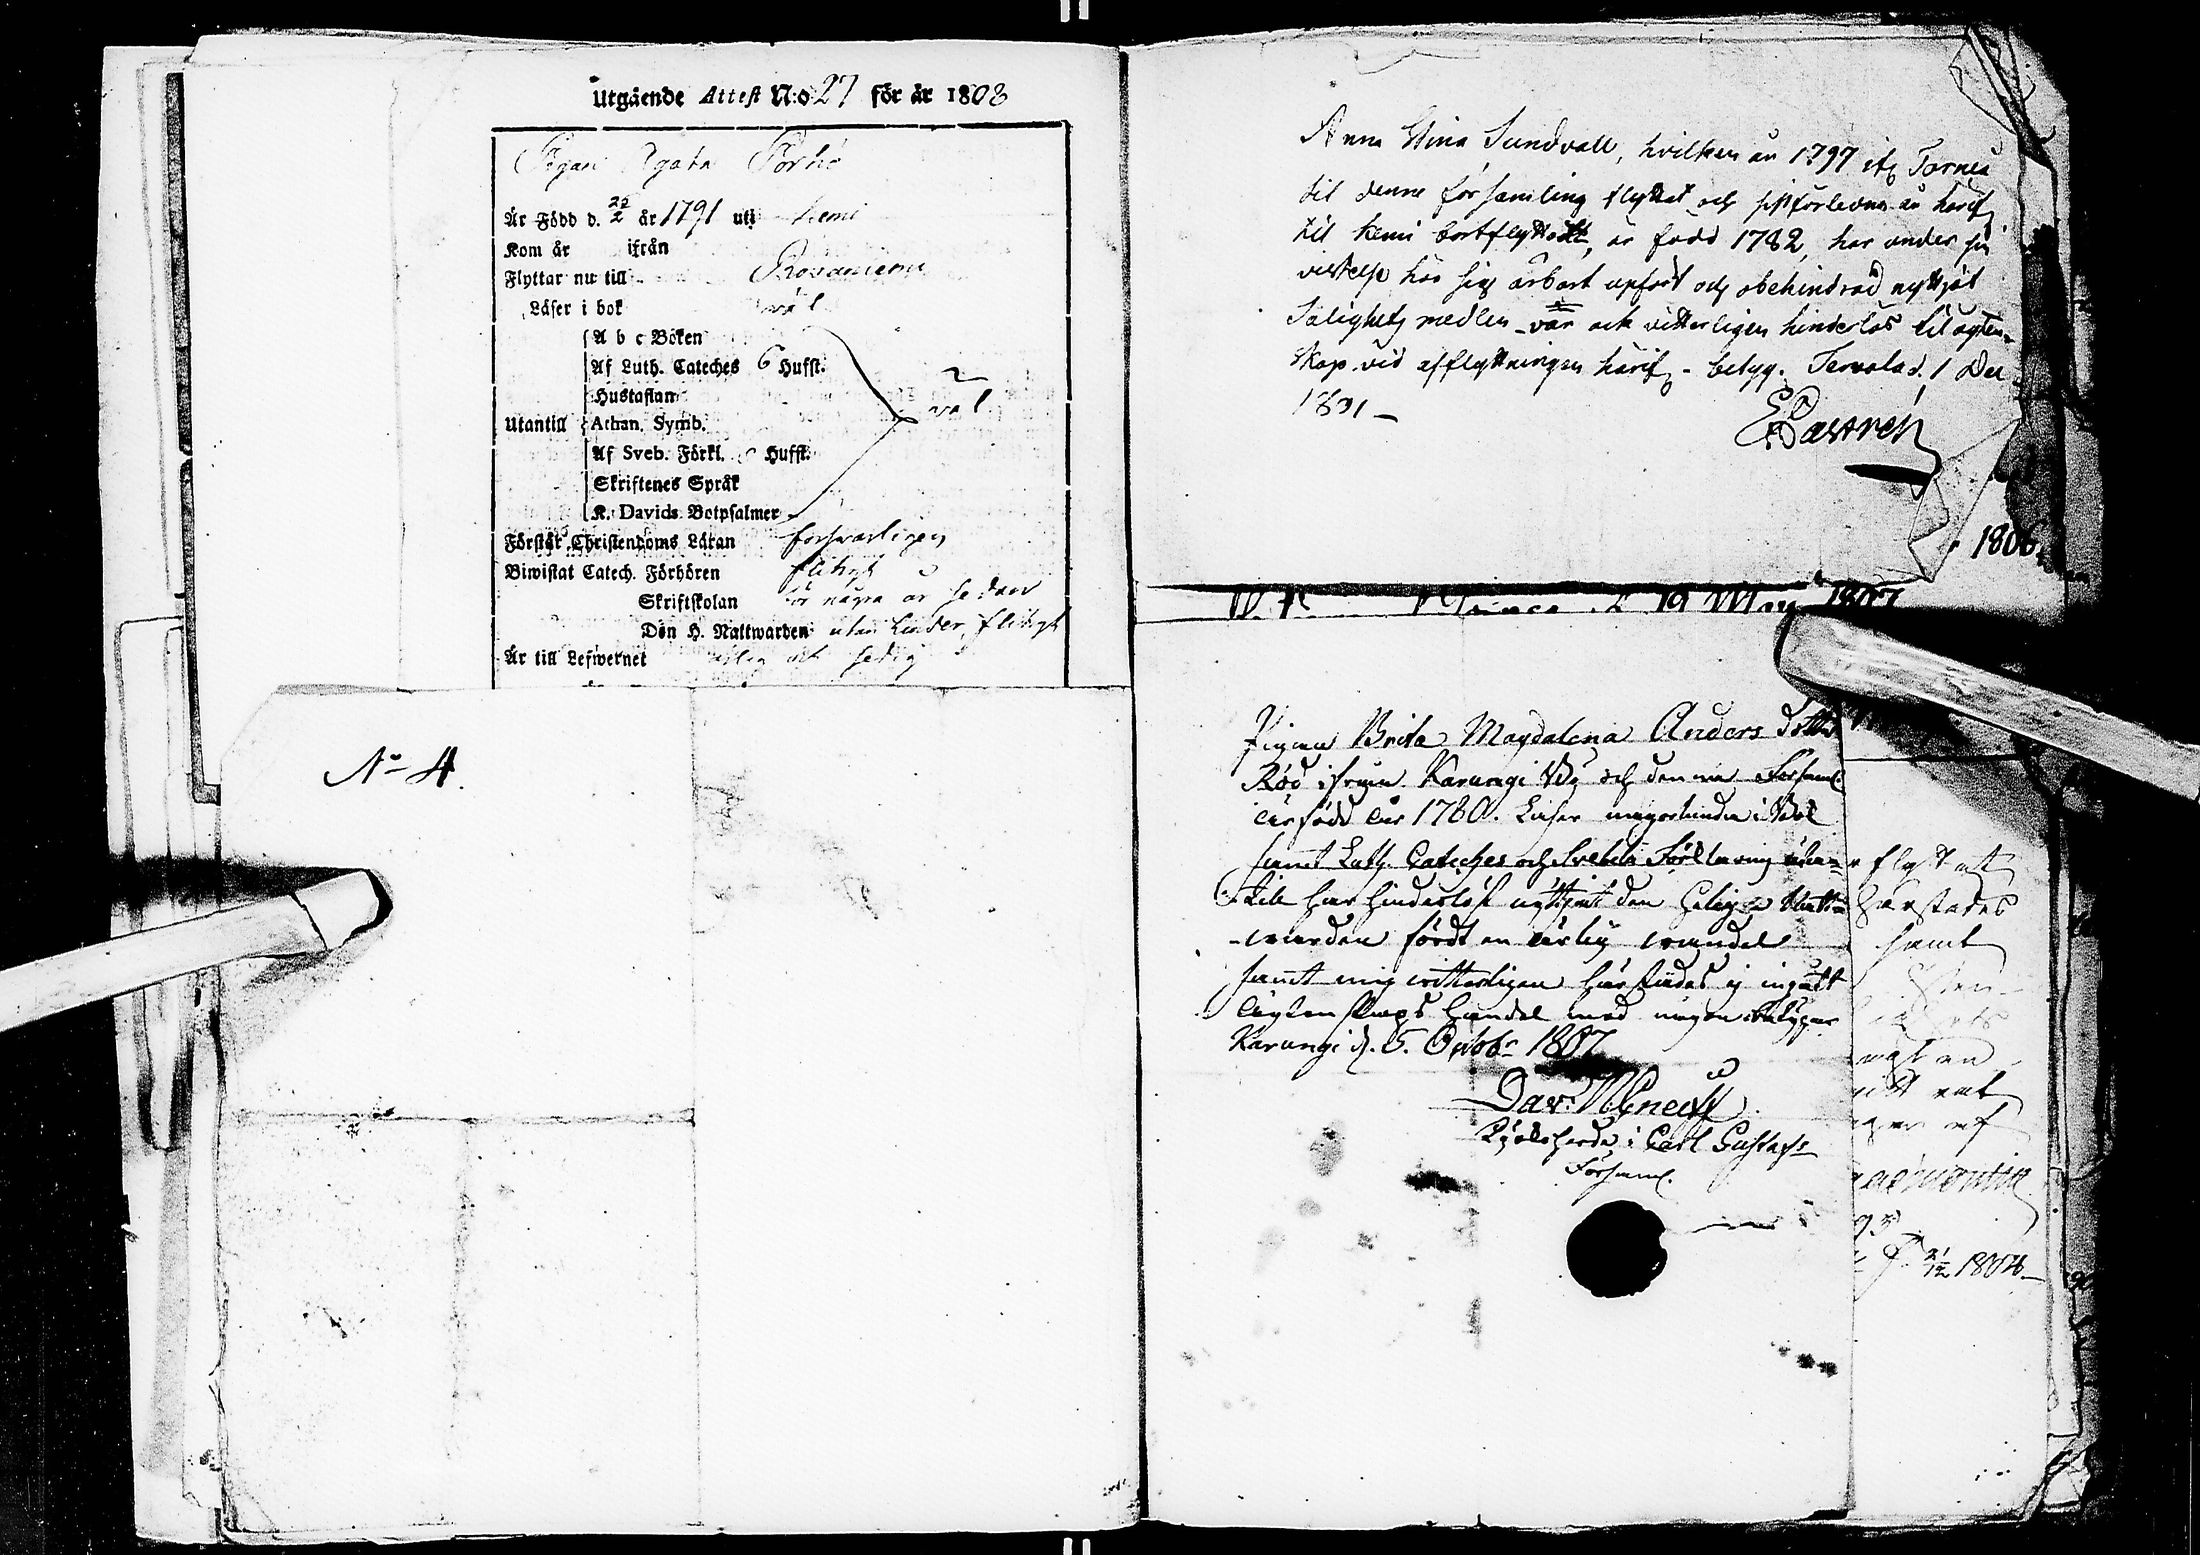 Utgående Attest N:o 27 för år 1808
Pigan Agata Porho
Är Född d. 25/2 år 1791 uti Kemi
Kom år ifrån
Flyttar nu till Rovaniemi
Läser i bok väl
A b c Boken
Af Luth. Cateches 6 Hufst.
Hustaflan
väl
Utantill Athan. Symb.
Af Sveb. Förkl. Hufst.
Skriftenes Språk
K. Davids Botpsalmer
Förstår Christendoms Läran försvarligen
Biwistat Catech. Förhören flitigt
Skriftskolan för några år sedan
Den H. Nattwarden utan hinder, flitigt
Är till Lefwernet och sedig
No 4.
Anna Stina Sundvall, hvilken år 1797 if Torneå
til denne församling flyttat och sistförledne år härif
til Kemi bortflyttadt, är född 1782, har under sin
vistelse här sig ärbart upfört och obehindrad nyttjat
Salighets medlen var ock vitterligen hinderlös til ägten-
skap vid afflyttningen härif - betyg. Tervola d. 1 Dec
1801
E Castrén
1806
19 May 1807
Pigan Brita Magdalena Anders dotter
Röd ifrån Karungi By och denna Församl.
är född år 1780. Läser i Bok
samt Luth. Catèches och Svebelii Förklaring utan-
till har hinderlöst nyttjat den Heliga Natt-
warden fördt en ärlig wandel
samt mig witterligen härstädes ej ingått
ägtenskaps handel med någon betygar
Karungi d. 5. Octobr 1807
Dav:
i Carl Gustafs
Församl.
flyttat
härstädes
samt
af
21/12 1804